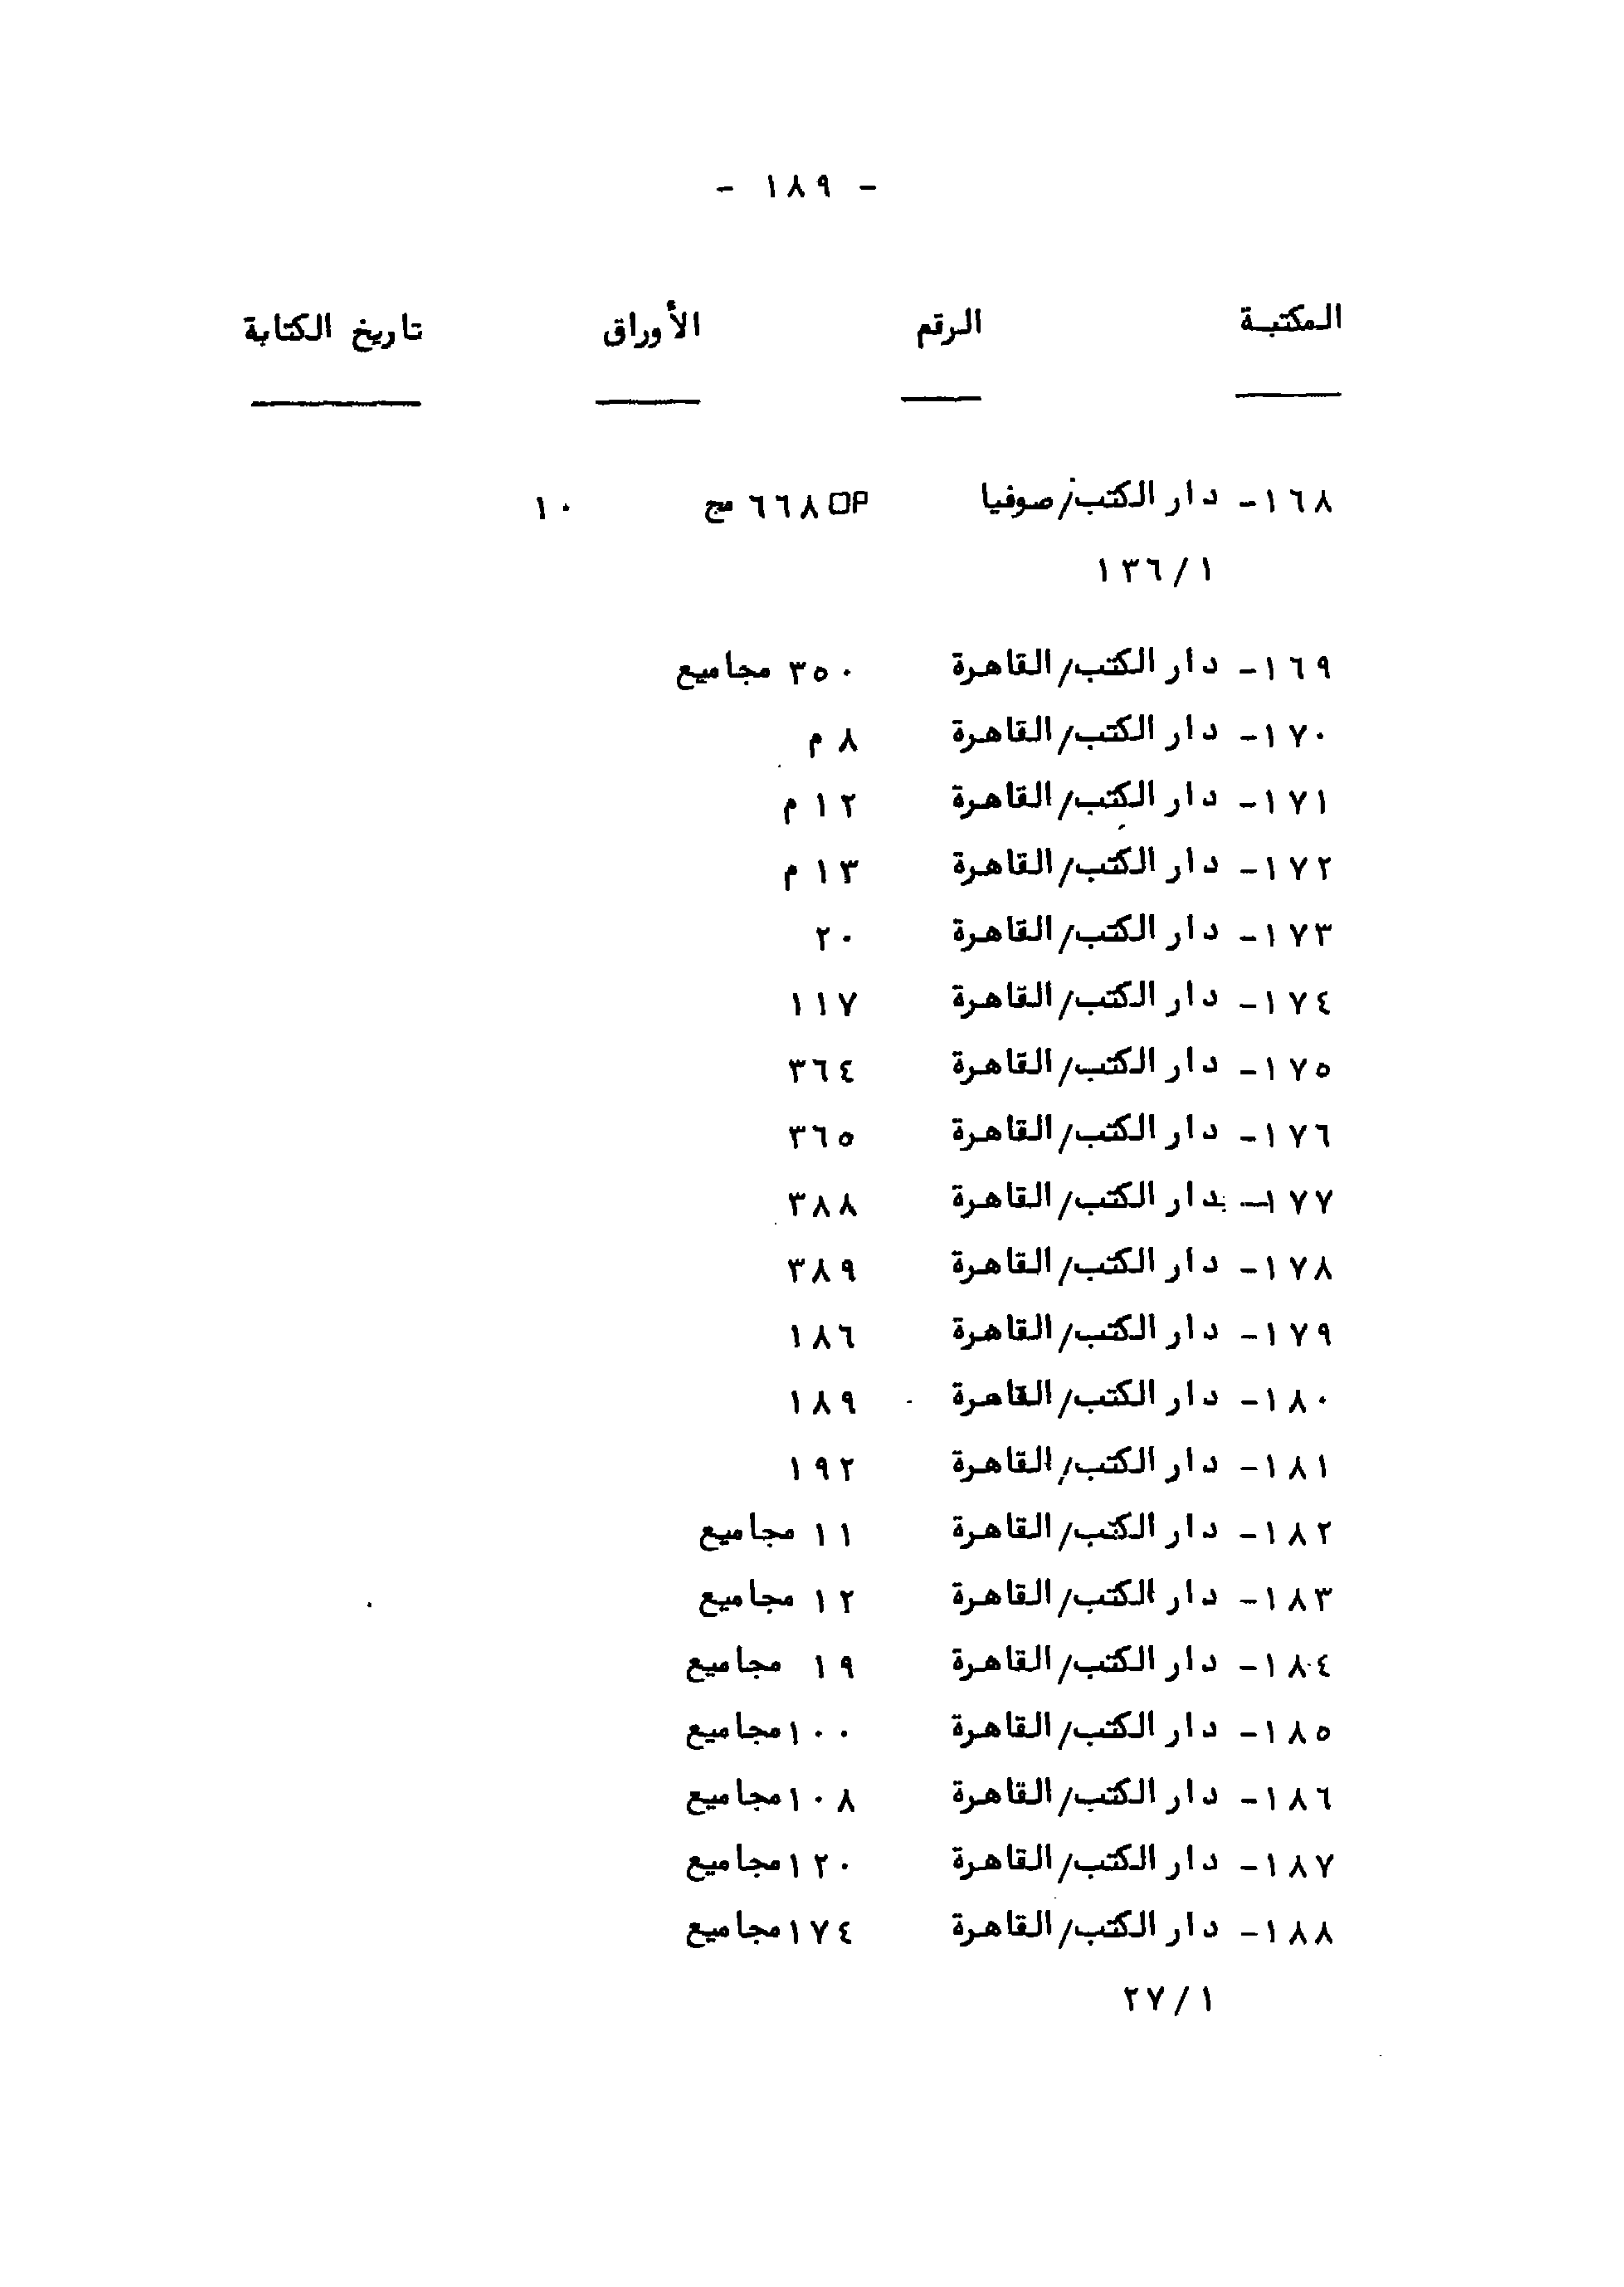 - ١٨٩ -
المكتبة الرقم الأوراق تاريخ الكتابة
١٦٨- دار الكتب/صوفيا OP ٦٦٨ مج ١٠
١٣٦/١
١٦٩- دار الكتب/القاهرة ٣٥٠ مجاميع
١٧٠- دار الكتب/القاهرة ٨ م
١٧١- دار الكتب/القاهرة ١٢ م
١٧٢- دار الكتب/القاهرة ١٣ م
١٧٣- دار الكتب/القاهرة ٢٠
١٧٤- دار الكتب/القاهرة ١١٧
١٧٥- دار الكتب/القاهرة ٣٦٤
١٧٦- دار الكتب/القاهرة ٣٦٥
١٧٧- دار الكتب/القاهرة ٣٨٨
١٧٨- دار الكتب/القاهرة ٣٨٩
١٧٩- دار الكتب/القاهرة ١٨٦
١٨٠- دار الكتب/القاهرة ١٨٩
١٨١- دار الكتب/القاهرة ١٩٢
١٨٢- دار الكتب/القاهرة ١١ مجاميع
١٨٣- دار الكتب/القاهرة ١٢ مجاميع
١٨٤- دار الكتب/القاهرة ١٩ مجاميع
١٨٥- دار الكتب/القاهرة ١٠٠ مجاميع
١٨٦- دار الكتب/القاهرة ١٠٨ مجاميع
١٨٧- دار الكتب/القاهرة ١٢٠ مجاميع
١٨٨- دار الكتب/القاهرة ١٧٤ مجاميع
٢٧/١